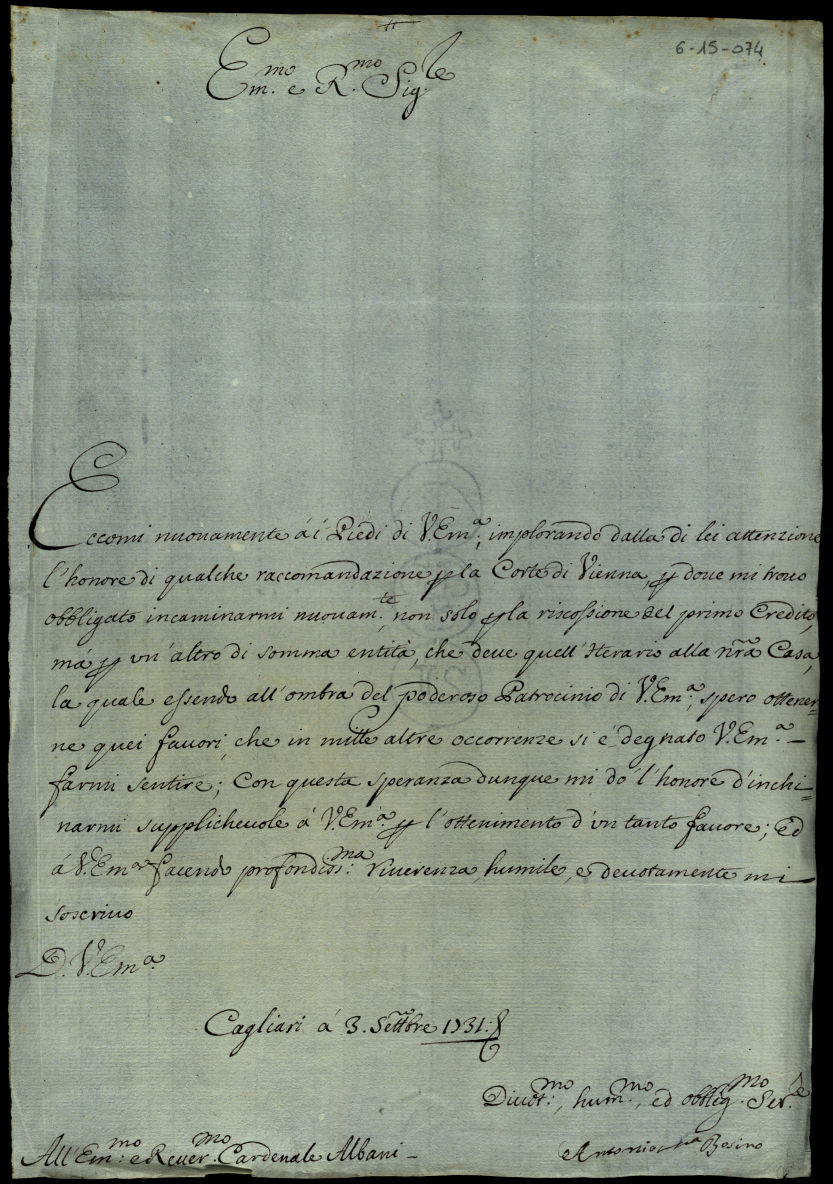 6-15-074
Em.mo e R.mo Sig.re
Eccomi nuouamente á i Piedi di V.Em.a, implorando dalla di lei attenzione
l'honore di qualche raccomandazione p la Corte di Vienna, p doue mi trouo
obbligato incaminarmi nuouam.te, non solo p la riscossione del primo Credito,
má p vn'altro di somma entità, che deue quell'Herario alla nrã Casa,
la quale essendo all'ombra del poderoso Patrocinio di V.Em.a, spero ottener-
ne quei fauori, che in mille altre occorrenze si é degnato V.Em.a -
farmi sentire; Con questa speranza dunque mi dó l'honore d'inchi-
narmi supplicheuole á V.Em.a p l'ottenimento d'vn tanto fauore; Ed
á V.Em.a facendo profondiss.ma riuerenza, humile, e deuotamente mi
soscriuo
D. V.Em.a
Cagliari á 3. Settbre 1731:
Diuot.mo, hum.mo, ed obblig.mo Ser.e
All'Em.mo e Reuer.mo Cardenale Albani -
Antonio